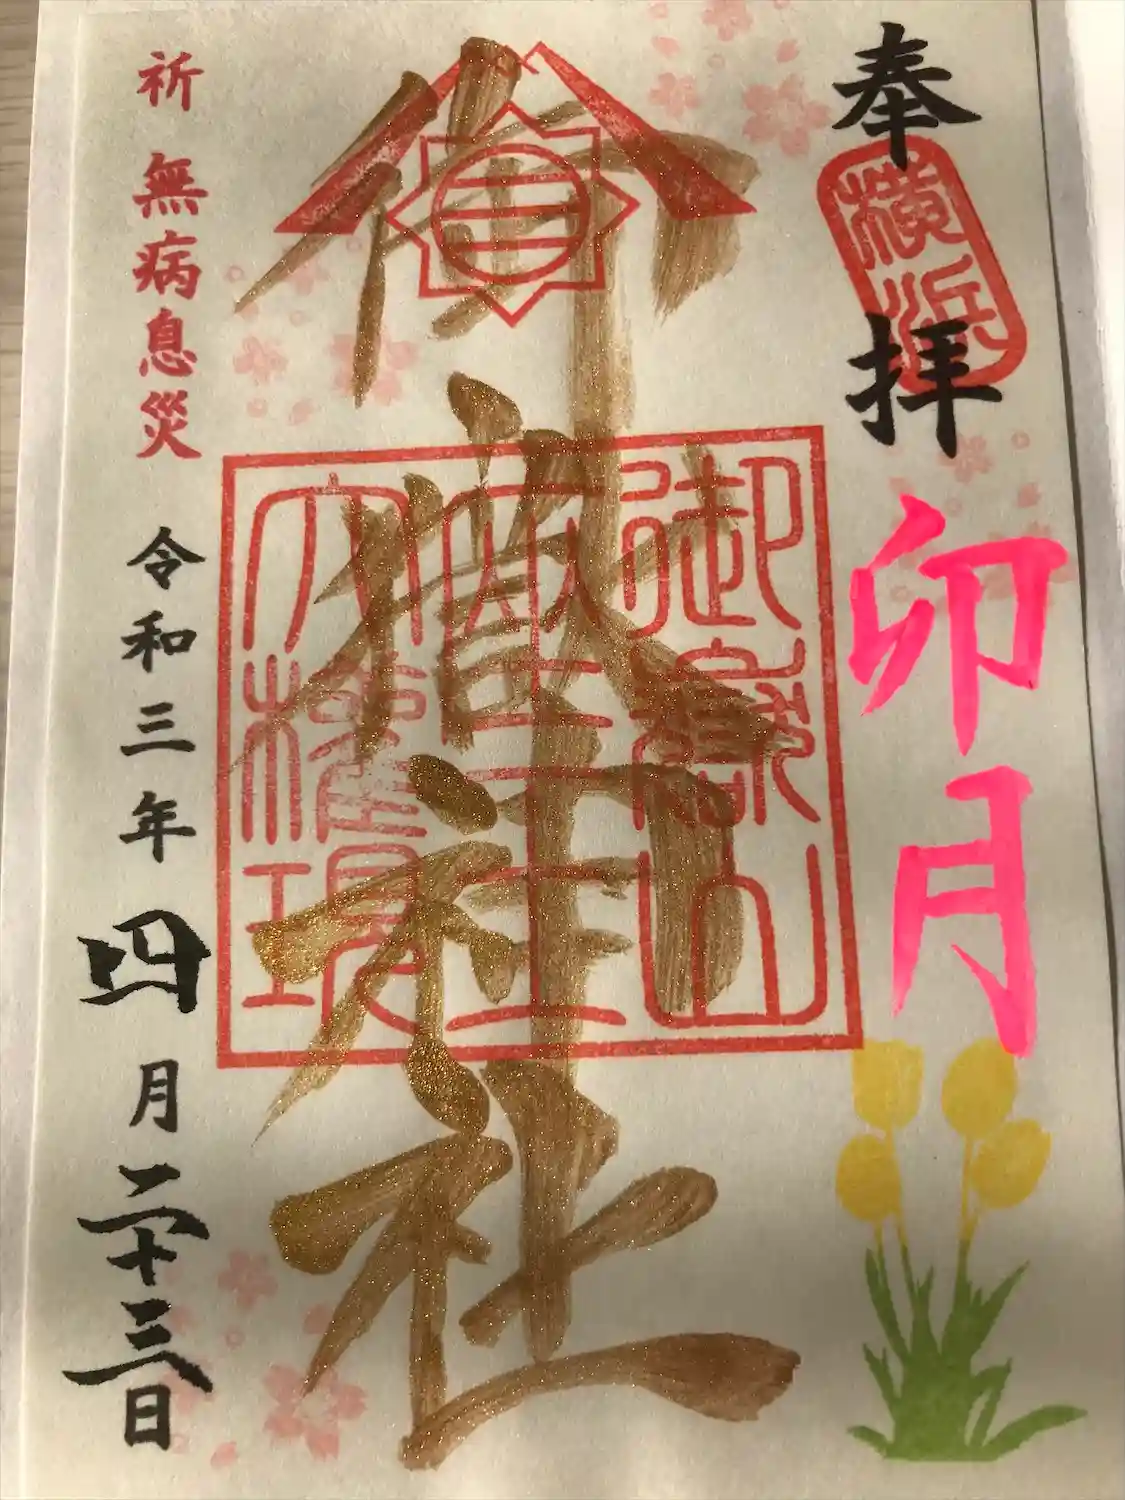 奉拝
横浜
卯月
御嶽神社
御嶽山
座王
大權現
祈 無病息災
令和三年四月二十三日